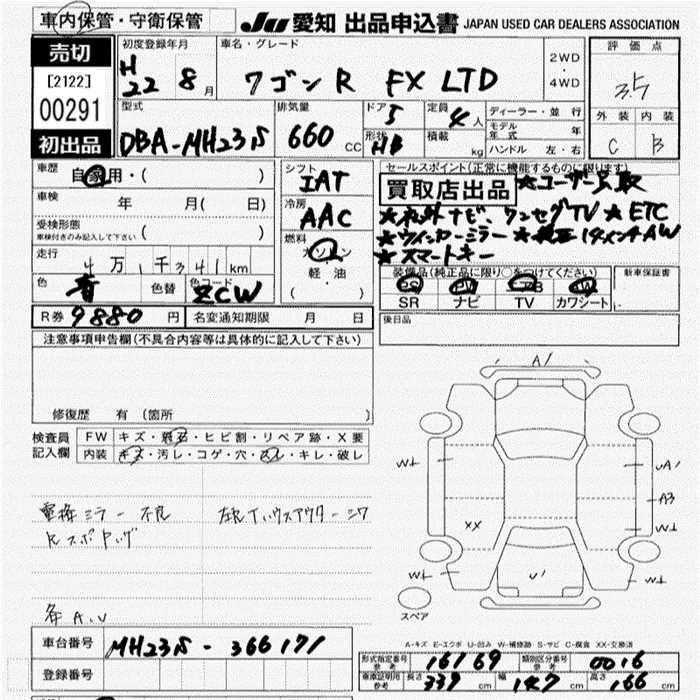 車内保管・守衛保管
JU 愛知 出品申込書 JAPAN USED CAR DEALERS ASSOCIATION
売切
[2122]
00291
初出品
初度登録年月
H 22 8月
車名・グレード
ワゴンR FX LTD
2WD
・
4WD
評価点
3.5
外装 内装
C B
型式
DBA-MH23S
排気量
660 CC
ドア 5
形状 HB
定員 4人
積載 kg
ディーラー・並行
モデル年式 年
ハンドル 左・右
車歴
自家用・( )
車検 年 月( 日)
受検形態
車検付きのみ記入して下さい ( )
走行
4万1千341km
色 青 色替 色コード ZCW
シフト
IAT
冷房
AAC
燃料
ガソリン
軽・油
( )
セールスポイント(正常に機能するものに限ります)
買取店出品 ★ユーザー買取
★社外ナビ、ワンセグTV ★ETC
★ウインカーミラー ★純正14インチAW
★スマートキー
装備品(純正品に限り○をつけてください)
SR ナビ TV カワシート
新車保証書
後日品
R券 9880円 名変通知期限 月 日
注意事項申告欄(不具合内容等は具体的に記入して下さい)
修復歴 有 (箇所 )
検査員
記入欄
FW キズ・飛石・ヒビ割・リペア跡・X要
内装 キズ・汚レ・コゲ・穴・スレ・キレ・破レ
電格ミラー不良
各A.U
A1
W1
UA1
A3
W1
XX
W1
U1
W1
スペア
A-キズ E-エクボ U-凹み W-補修跡 S-サビ C-腐食 XX-交換済
車台番号 MH23S-366171
登録番号
形式指定番号
参考 16169
類別区分番号
参考 0016
車庫証明用
参考 長さ 339cm 幅 147cm 高さ 166cm